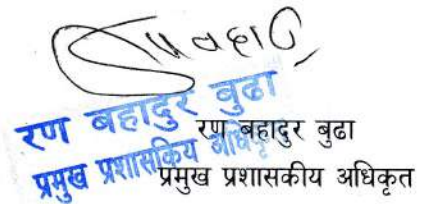 रण बहादुर बुढा
प्रमुख प्रशासकिय अधिकृत
रण बहादुर बुढा
प्रमुख प्रशासकीय अधिकृत